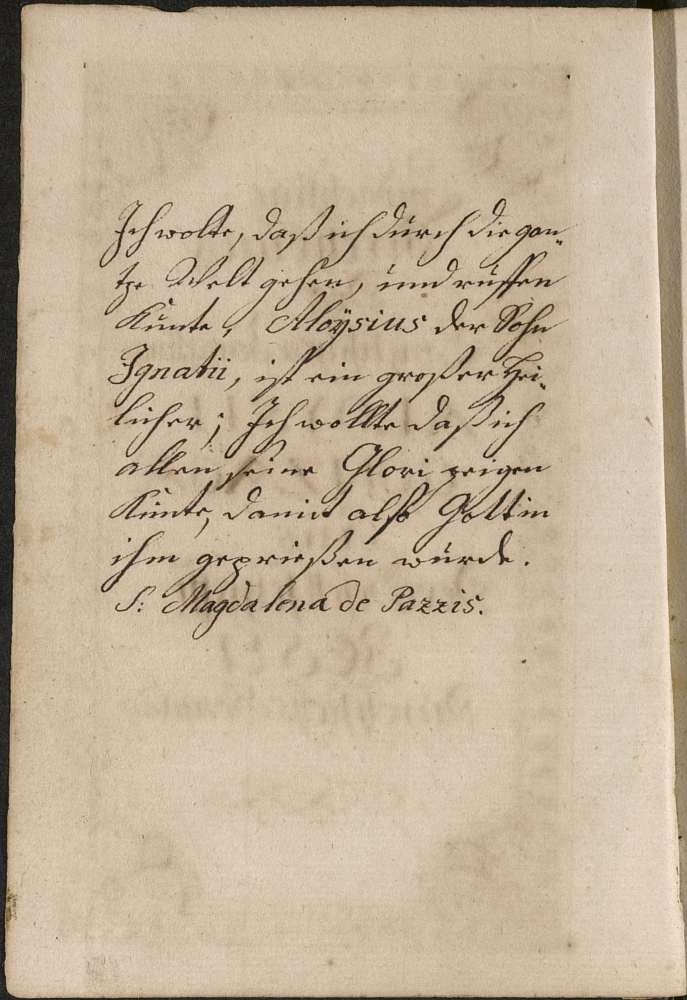 Ich wolte, daß ich durch die gan„
tze Welt gehen, und ruffen
Kunte, Aloÿsius der Sohn
Ignatii, ist ein großer Hei„
licher; Ich wollte daß ich
allen seine Glori zeigen
Kunte, damit also Gott in
ihm geprießen würde.
S: Magdalena de Pazzis.